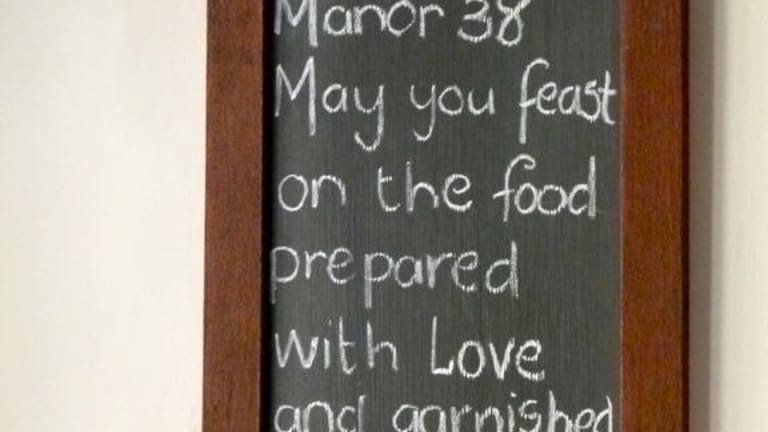 Manor 38
May you feast
on the food
prepared
with Love
and garnished